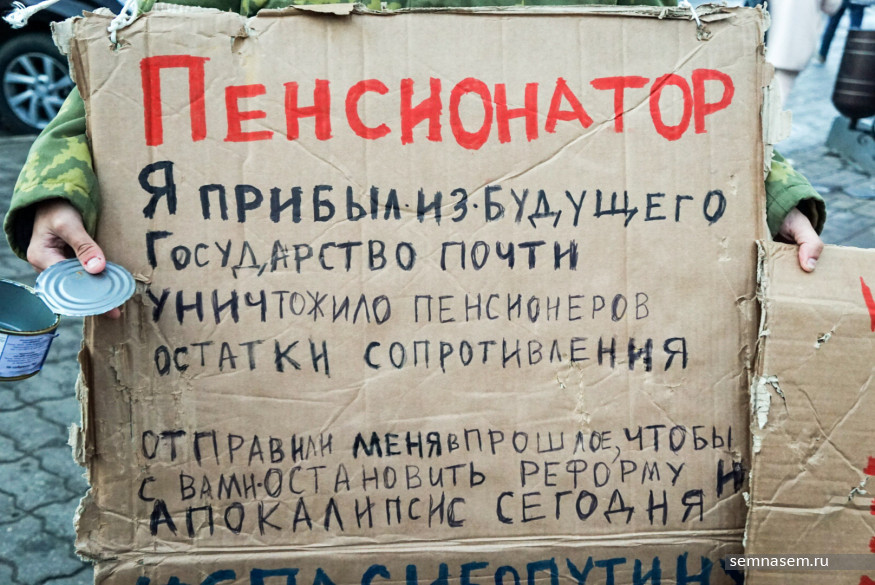 ПЕНСИОНАТОР
Я ПРИБЫЛ·ИЗ·БУДУЩЕГО
ГОСУДАРСТВО ПОЧТИ
УНИЧТОЖИЛО ПЕНСИОНЕРОВ
ОСТАТКИ СОПРОТИВЛЕНИЯ
ОТПРАВИЛИ МЕНЯ В ПРОШЛОЕ, ЧТОБЫ
С ВАМИ·ОСТАНОВИТЬ РЕФОРМУ И
АПОКАЛИПСИС СЕГОДНЯ
semnasem.ru